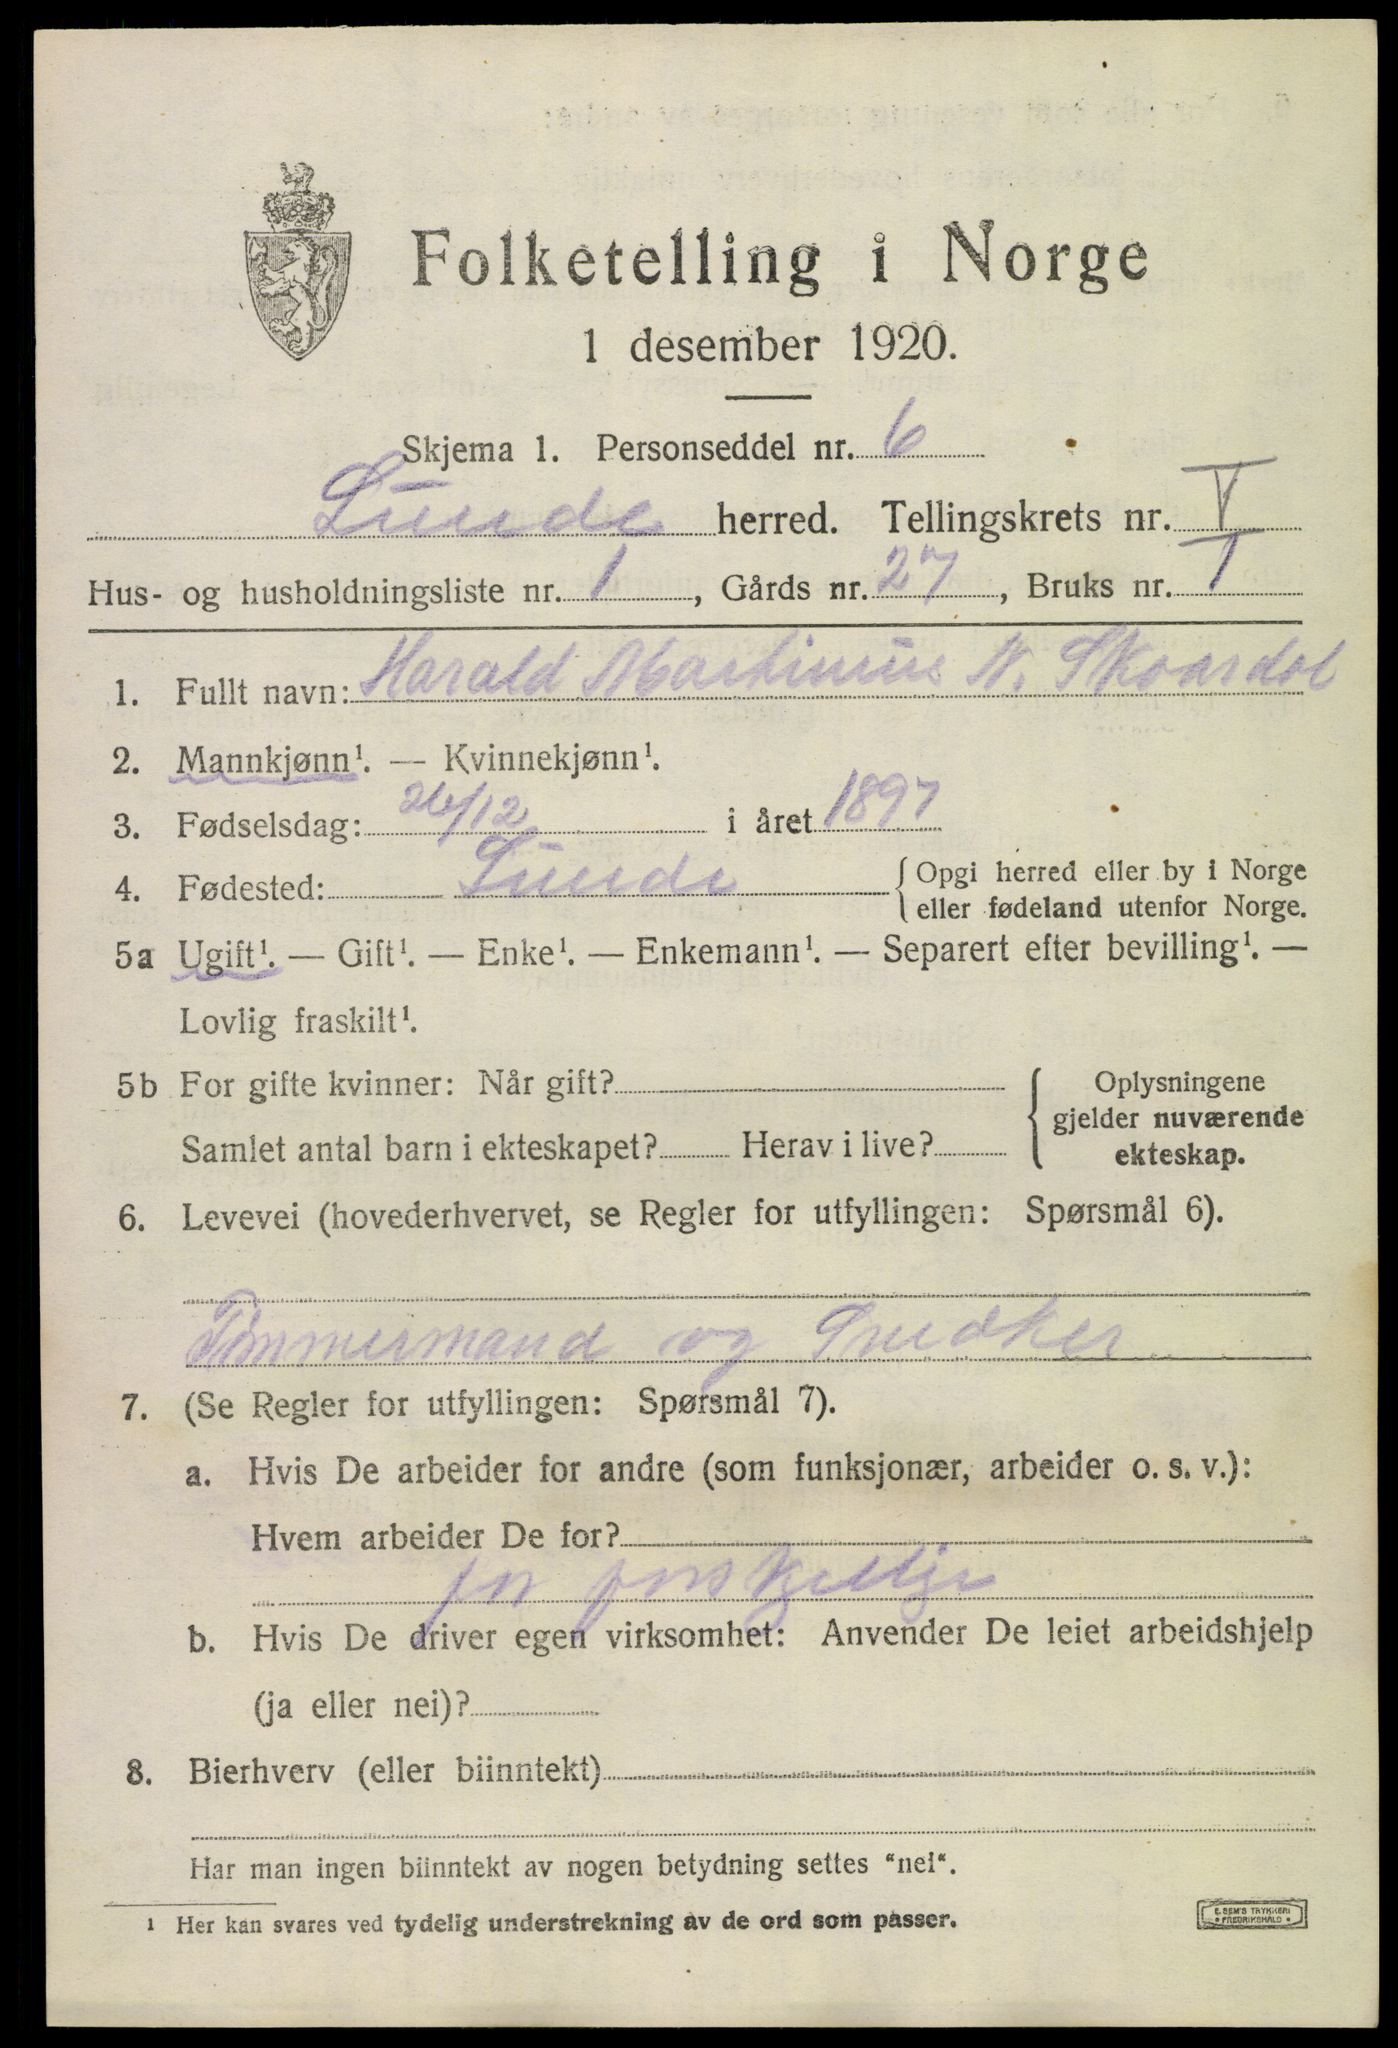 Folketelling i Norge
1 desember 1920.
Skjema 1. Personseddel nr. 6
Lunde herred. Tellingskrets nr. V
Hus- og husholdningsliste nr. 1, Gårds nr. 27, Bruks nr. 1
1. Fullt navn: Harald Martinius N. Skoardal
2. Mannkjønn¹. — Kvinnekjønn¹.
3. Fødselsdag: 26/12 i året 1897
4. Fødested: Lunde { Opgi herred eller by i Norge
eller fødeland utenfor Norge.
5a Ugift¹. — Gift¹. — Enke¹. — Enkemann¹. — Separert efter bevilling¹. —
Lovlig fraskilt¹.
5b For gifte kvinner: Når gift? { Oplysningene
gjelder nuværende
Samlet antal barn i ekteskapet? Herav i live? ekteskap.
6. Levevei (hovederhvervet, se Regler for utfyllingen: Spørsmål 6).
Tømmermand og Snedker
7. (Se Regler for utfyllingen: Spørsmål 7).
a. Hvis De arbeider for andre (som funksjonær, arbeider o. s. v.):
Hvem arbeider De for?
for forskjellige
b. Hvis De driver egen virksomhet: Anvender De leiet arbeidshjelp
(ja eller nei)?
8. Bierhverv (eller biinntekt)
Har man ingen biinntekt av nogen betydning settes "nei".
1 Her kan svares ved tydelig understrekning av de ord som passer.
E. SEM'S TRYKKERI
• FREDRIKSHALD •